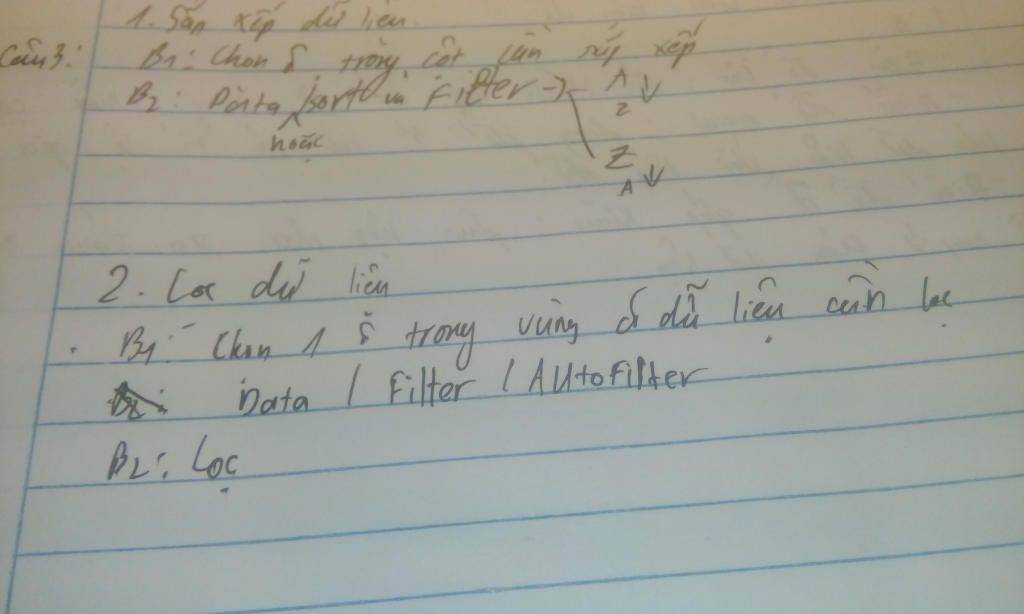 1. Sắp xếp dữ liệu
Câu 3: B1: Chọn ô trong cột cần sắp xếp
B2: Data / sort và Filter → A Z ↓
hoặc
Z A ↓
2. Lọc dữ liêu
B1: Chọn 1 ô trong vùng có dữ liệu cần lọc
Data / Filter / AUtoFilter
B2: Lọc